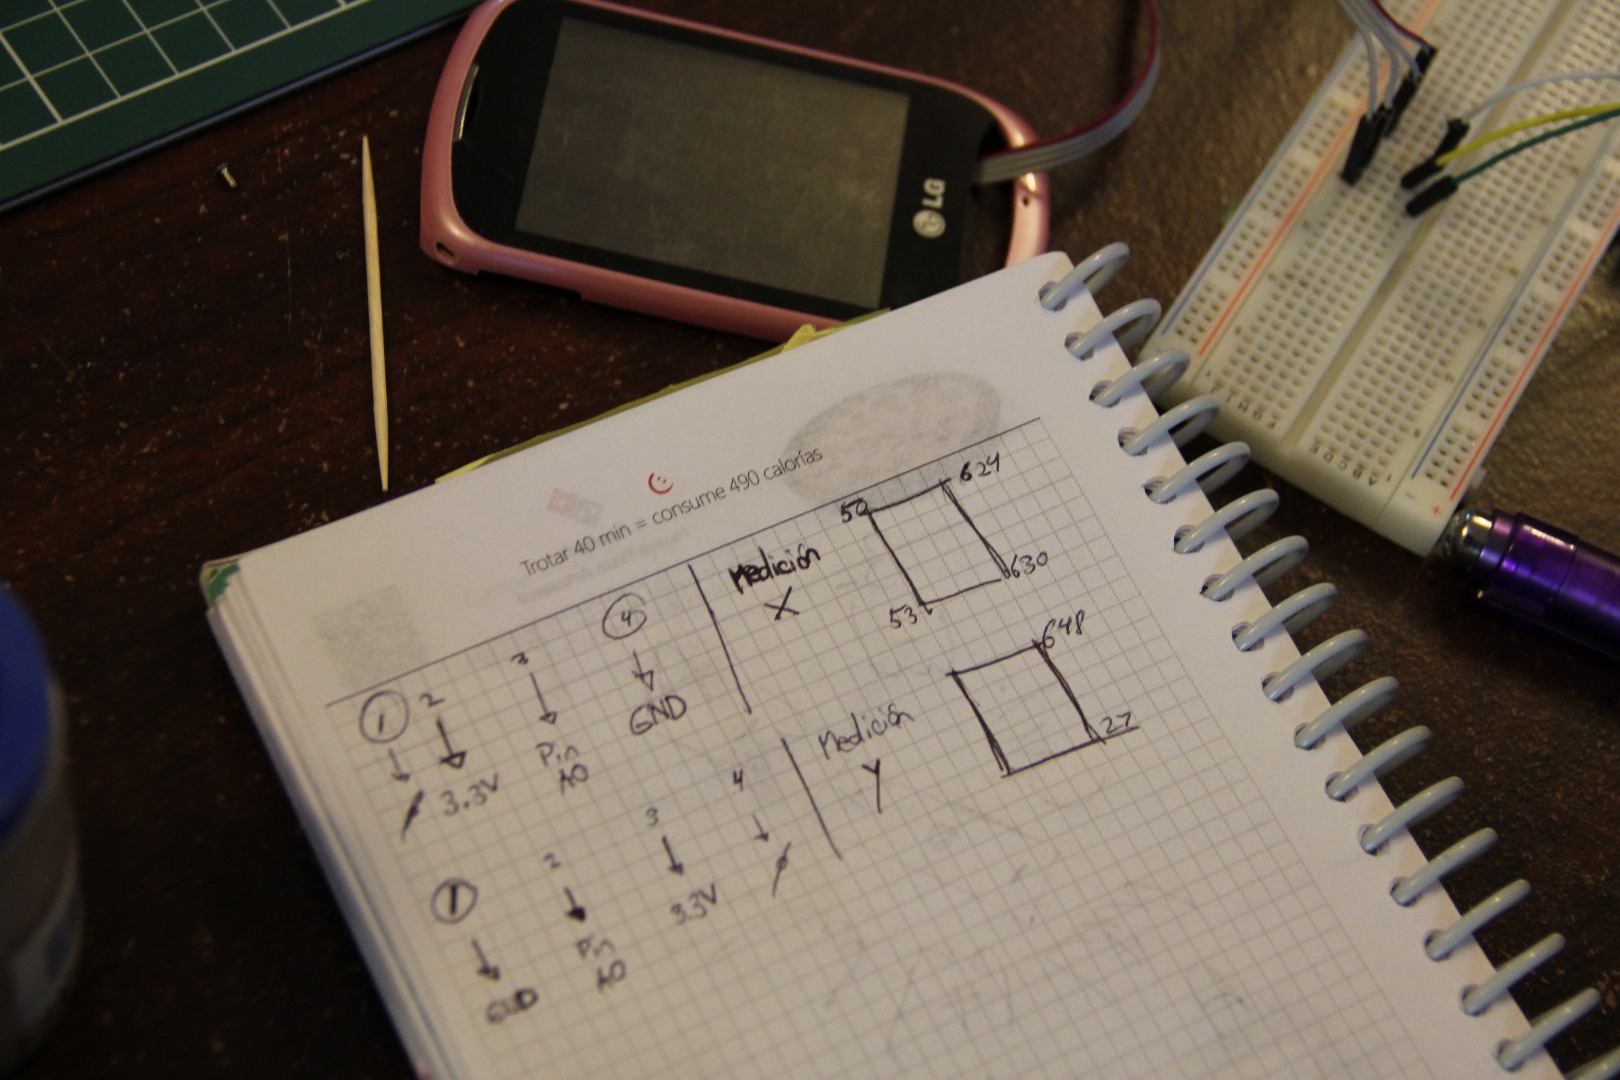 LG
Trotar 40 min = consume 490 calorías
1 2 3 4
3.3V Pin A0 GND
Medición
X
50 624
53 630
1 2 3 4
GND Pin A0 3.3V
Medición
Y
648
27